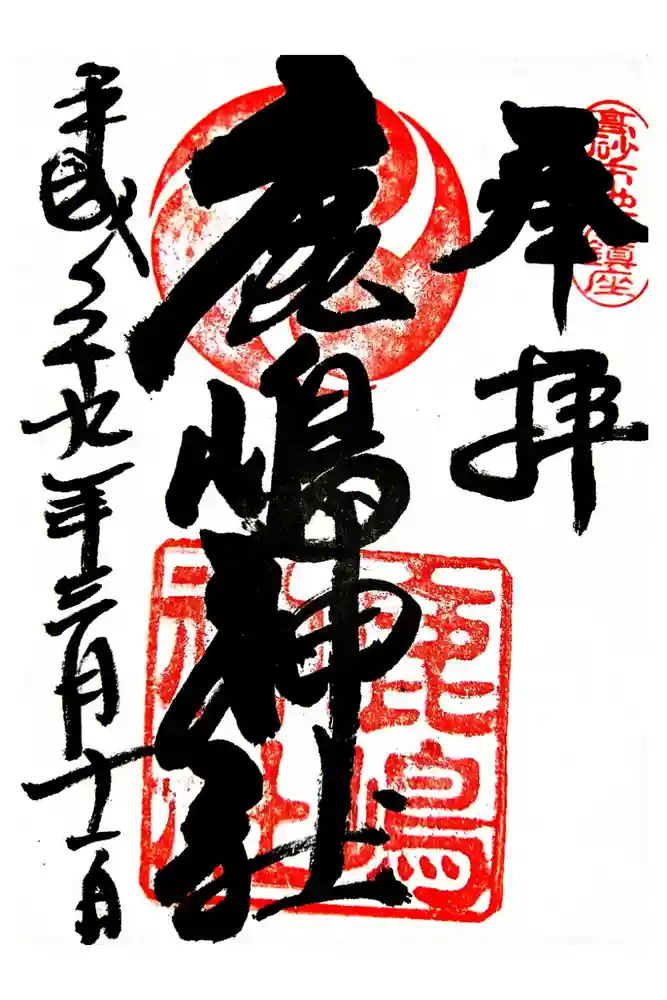 高砂市地鎮座
奉拝
鹿嶋神社
鹿嶋
神社
平成二十九年三月十一日